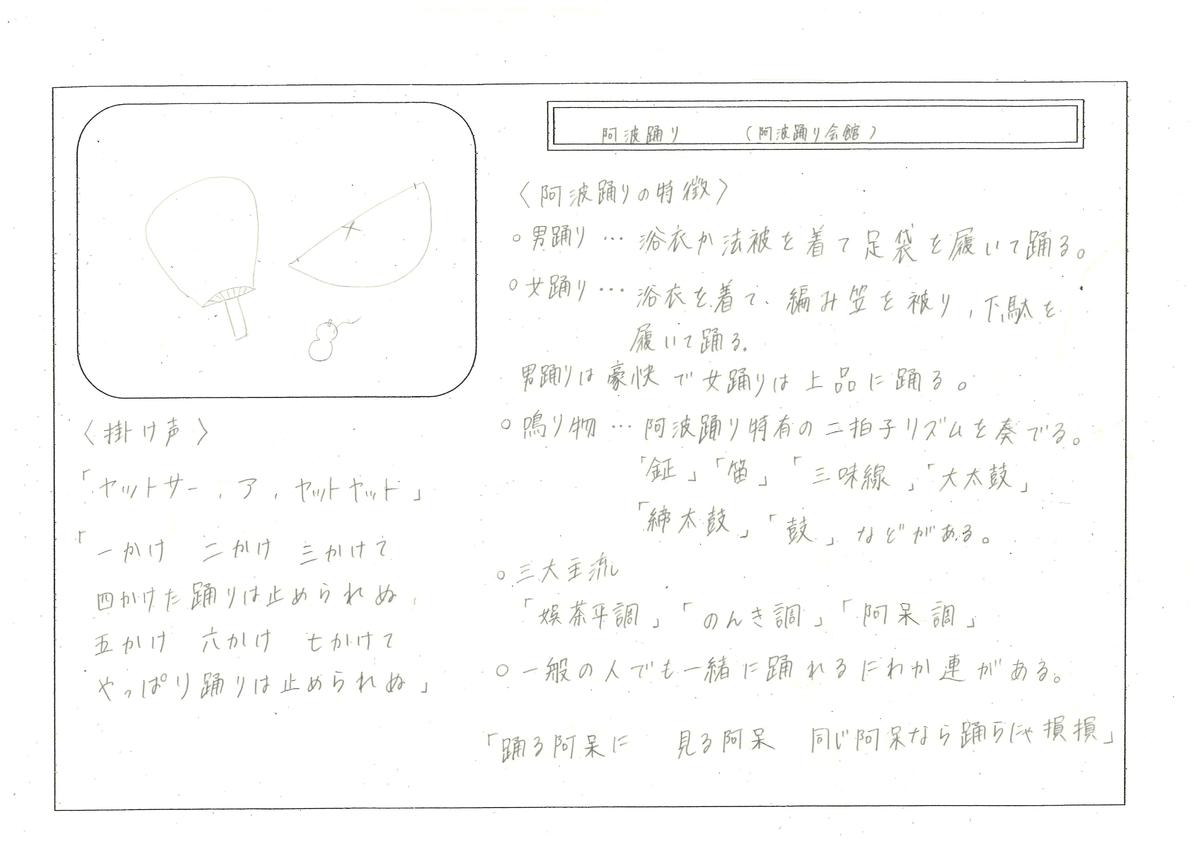 阿波踊り （阿波踊り会館）
〈阿波踊りの特徴〉
○男踊り … 浴衣か法被を着て足袋を履いて踊る。
○女踊り … 浴衣を着て、編み笠を被り、下駄を
履いて踊る。
男踊りは豪快で女踊りは上品に踊る。
○鳴り物 … 阿波踊り特有の二拍子リズムを奏でる。
「鉦」「笛」「三味線」「大太鼓」
「締太鼓」「鼓」などがある。
○三大主流
「娯茶平調」「のんき調」「阿呆調」
○一般の人でも一緒に踊れるにわか連がある。
「踊る阿呆に 見る阿呆 同じ阿呆なら踊らにゃ損損」
〈掛け声〉
「ヤットサー、ア、ヤットヤット」
「一かけ 二かけ 三かけて
四かけた踊りは止められぬ、
五かけ 六かけ 七かけて
やっぱり踊りは止められぬ」